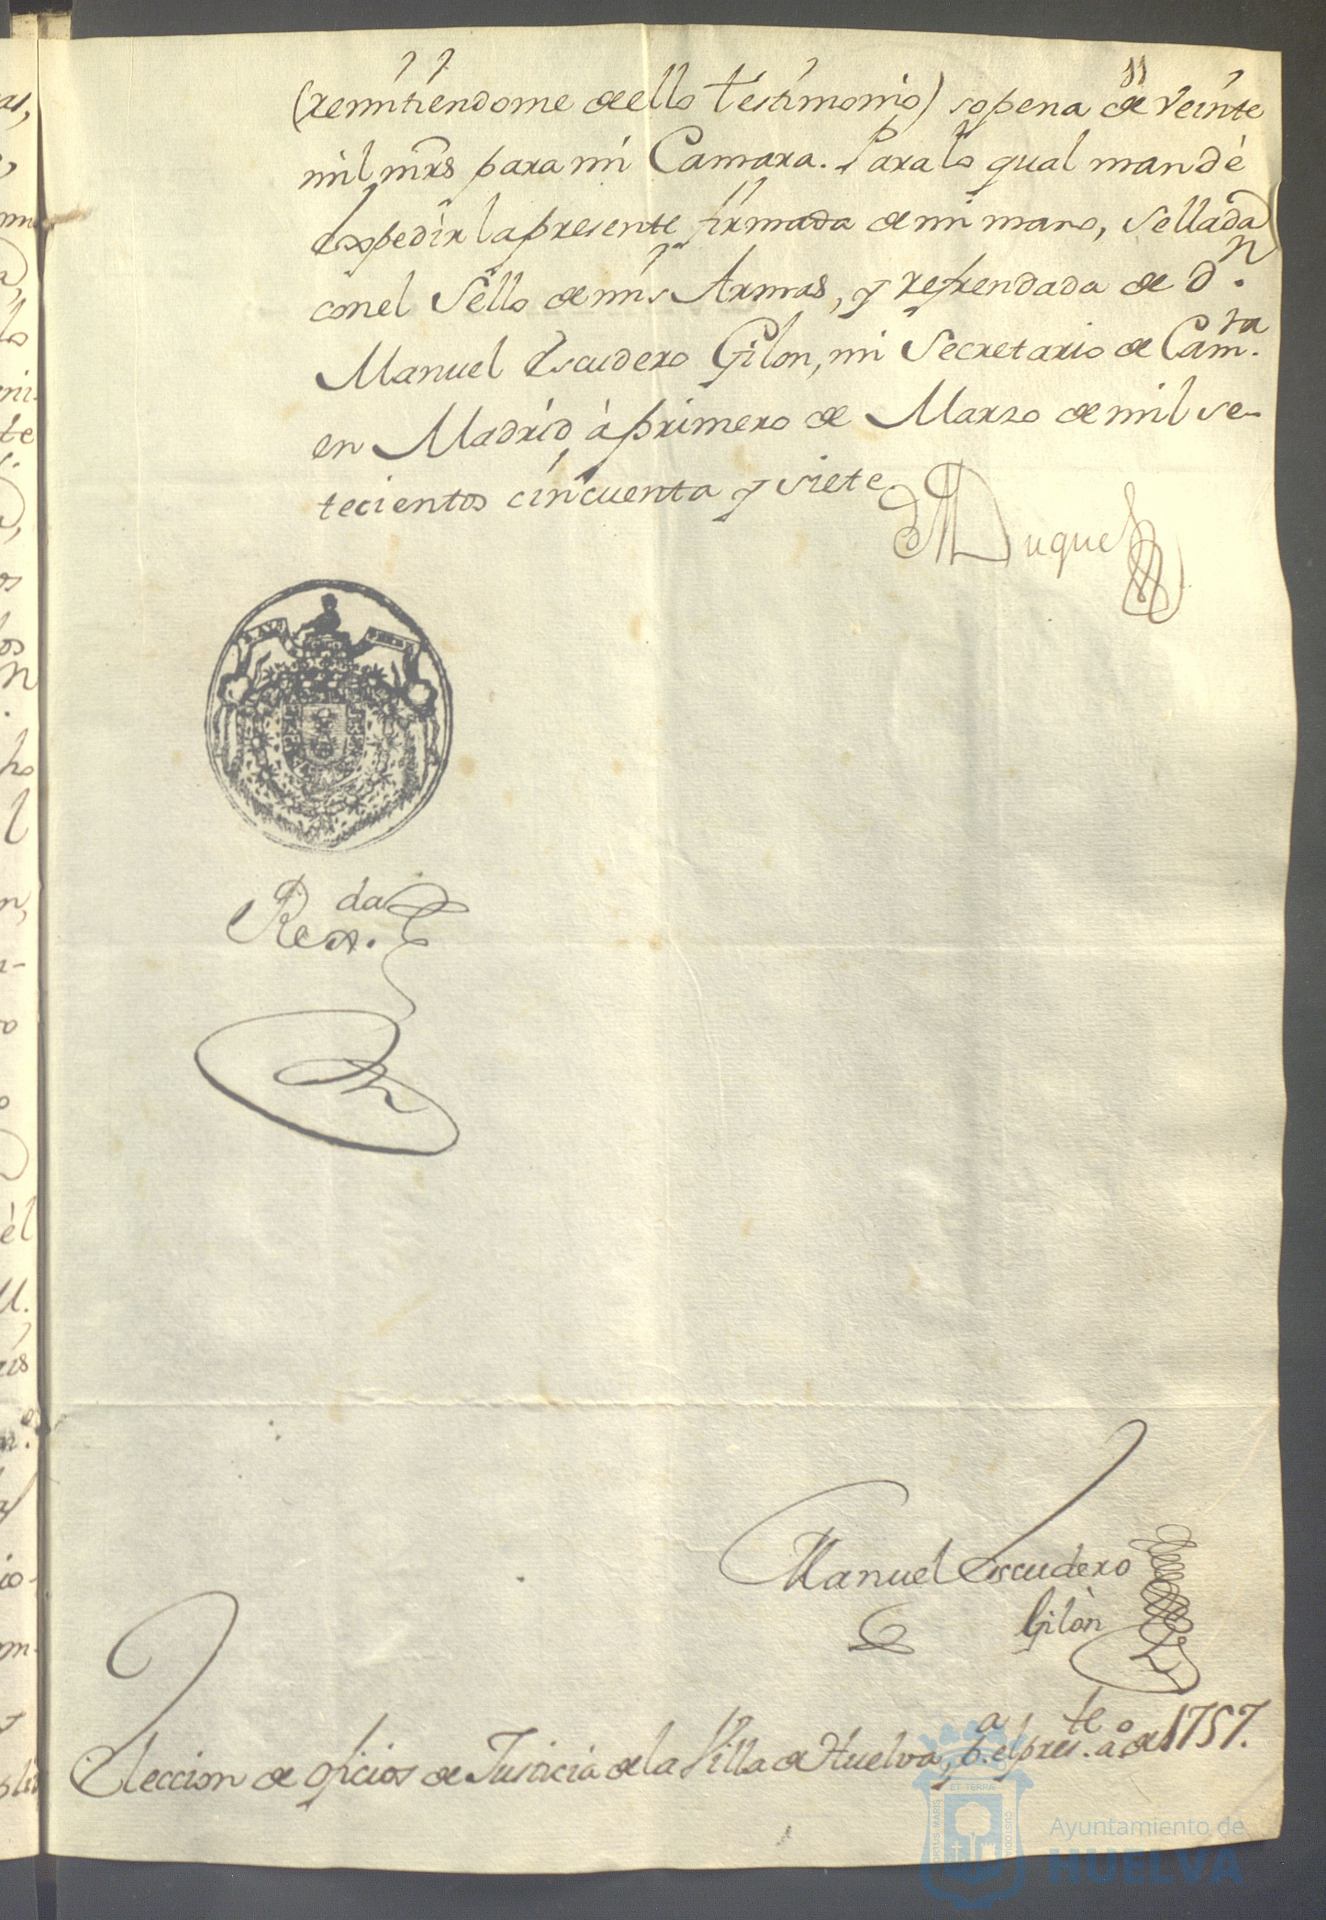 (remitiendome de ello testimonio) sopena de veinte
mil mrs para mi Camara. Para lo qual mandè
expedir la presente firmada de mi mano, sellada
con el Sello de mis Armas, y refrendada de Dn.
Manuel Escudero Gilon, mi Secretario de Camra.
en Madrid à primero de Marzo de mil se-
tecientos cinquenta y siete.
el Duque
Rexda.
Manuel Escudero
Gilòn
Eleccion de oficios de Justicia de la Villa de Huelva, pa. el preste. ao. de 1757.
ET TERRÆ
PORTUS MARIS
CUSTODIA
Ayuntamiento de
HUELVA